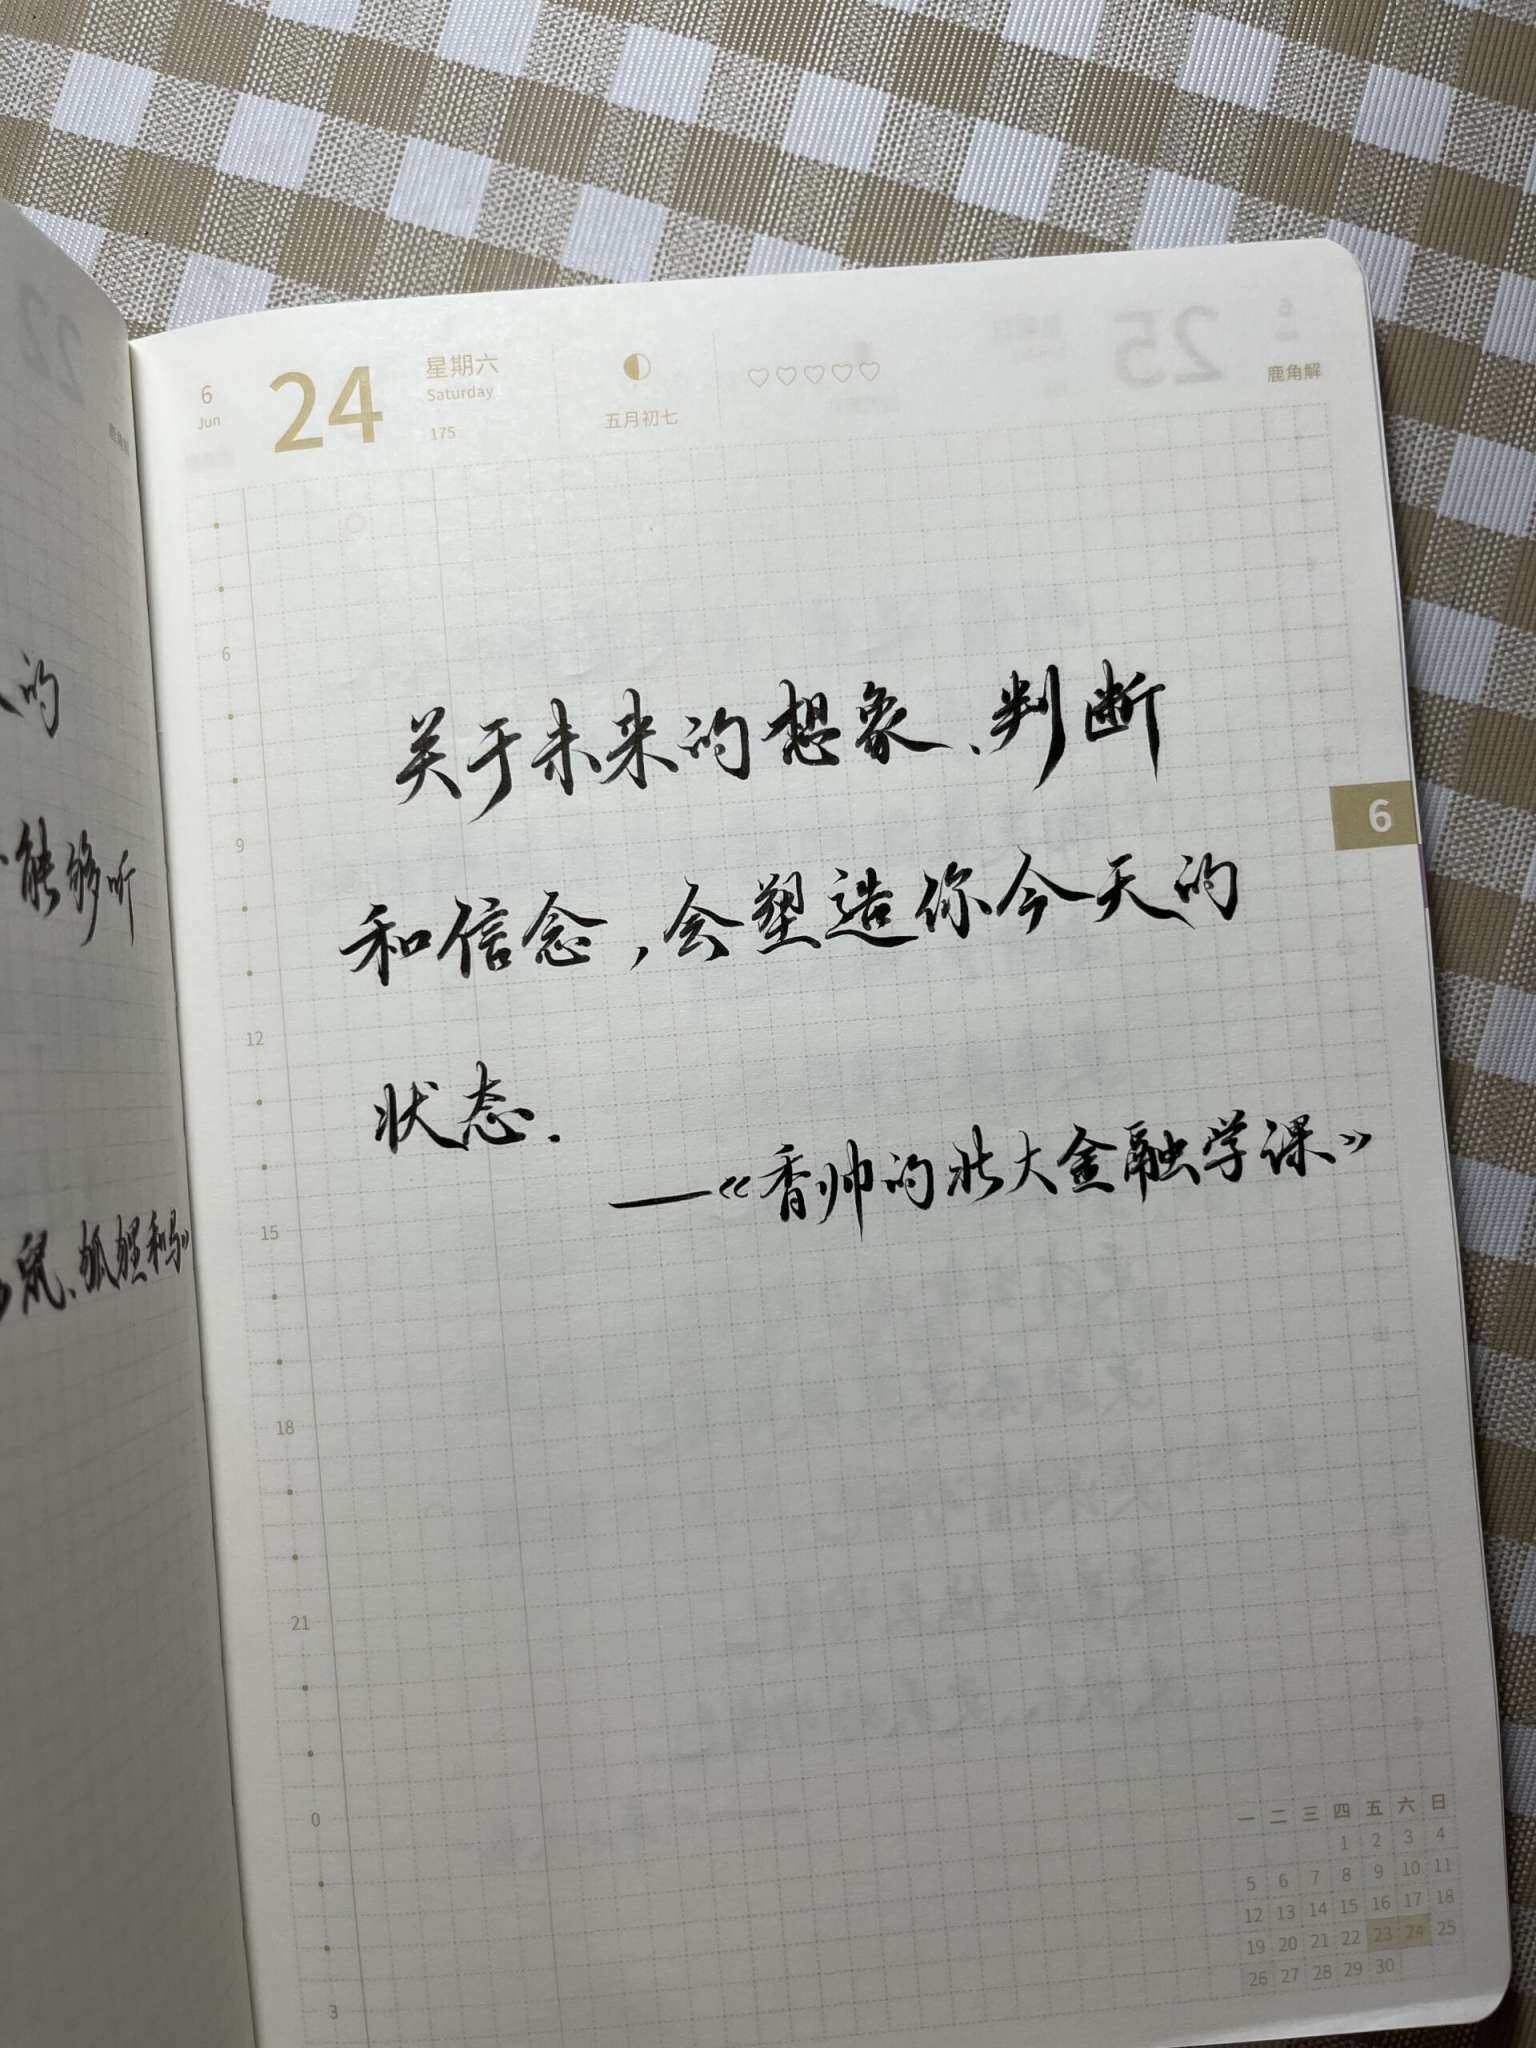 的
能够听
鼠、狐狸和马》
6
Jun
24
星期六
Saturday
175
五月初七
鹿角解
6
9
12
15
18
21
0
3
关于未来的想象、判断
和信念，会塑造你今天的
状态.
——《香帅的北大金融学课》
6
一 二 三 四 五 六 日
1 2 3 4
5 6 7 8 9 10 11
12 13 14 15 16 17 18
19 20 21 22 23 24 25
26 27 28 29 30